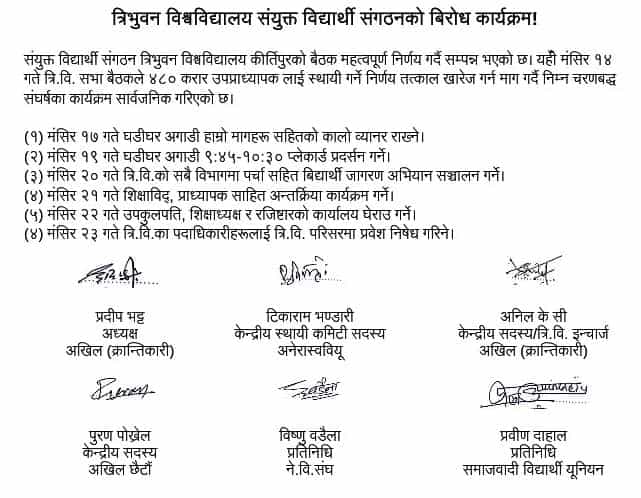 त्रिभुवन विश्वविद्यालय संयुक्त विद्यार्थी संगठनको बिरोध कार्यक्रम!
संयुक्त विद्यार्थी संगठन त्रिभुवन विश्वविद्यालय कीर्तिपुरको बैठक महत्वपूर्ण निर्णय गर्दै सम्पन्न भएको छ। यही मंसिर १४
गते त्रि.वि. सभा बैठकले ४८० करार उपप्राध्यापक लाई स्थायी गर्ने निर्णय तत्काल खारेज गर्न माग गर्दै निम्न चरणबद्ध
संघर्षका कार्यक्रम सार्वजनिक गरिएको छ।
(१) मंसिर १७ गते घडीघर अगाडी हाम्रो मागहरू सहितको कालो व्यानर राख्ने।
(२) मंसिर १९ गते घडीघर अगाडी ९:४५-१०:३० प्लेकार्ड प्रदर्सन गर्ने।
(३) मंसिर २० गते त्रि.वि.को सबै विभागमा पर्चा सहित बिद्यार्थी जागरण अभियान सञ्चालन गर्ने।
(४) मंसिर २१ गते शिक्षाविद्, प्राध्यापक साहित अन्तर्क्रिया कार्यक्रम गर्ने।
(५) मंसिर २२ गते उपकुलपति, शिक्षाध्यक्ष र रजिष्टारको कार्यालय घेराउ गर्ने।
(४) मंसिर २३ गते त्रि.वि.का पदाधिकारीहरूलाई त्रि.वि. परिसरमा प्रवेश निषेध गरिने।
प्रदीप भट्ट
अध्यक्ष
अखिल (क्रान्तिकारी)
टिकाराम भण्डारी
केन्द्रीय स्थायी कमिटी सदस्य
अनेरास्ववियू
अनिल के सी
केन्द्रीय सदस्य/त्रि.वि. इन्चार्ज
अखिल (क्रान्तिकारी)
पुरण पोख्रेल
केन्द्रीय सदस्य
अखिल छैटौं
विष्णु वडैला
प्रतिनिधि
ने.वि.संघ
प्रवीण दाहाल
प्रतिनिधि
समाजवादी विद्यार्थी यूनियन